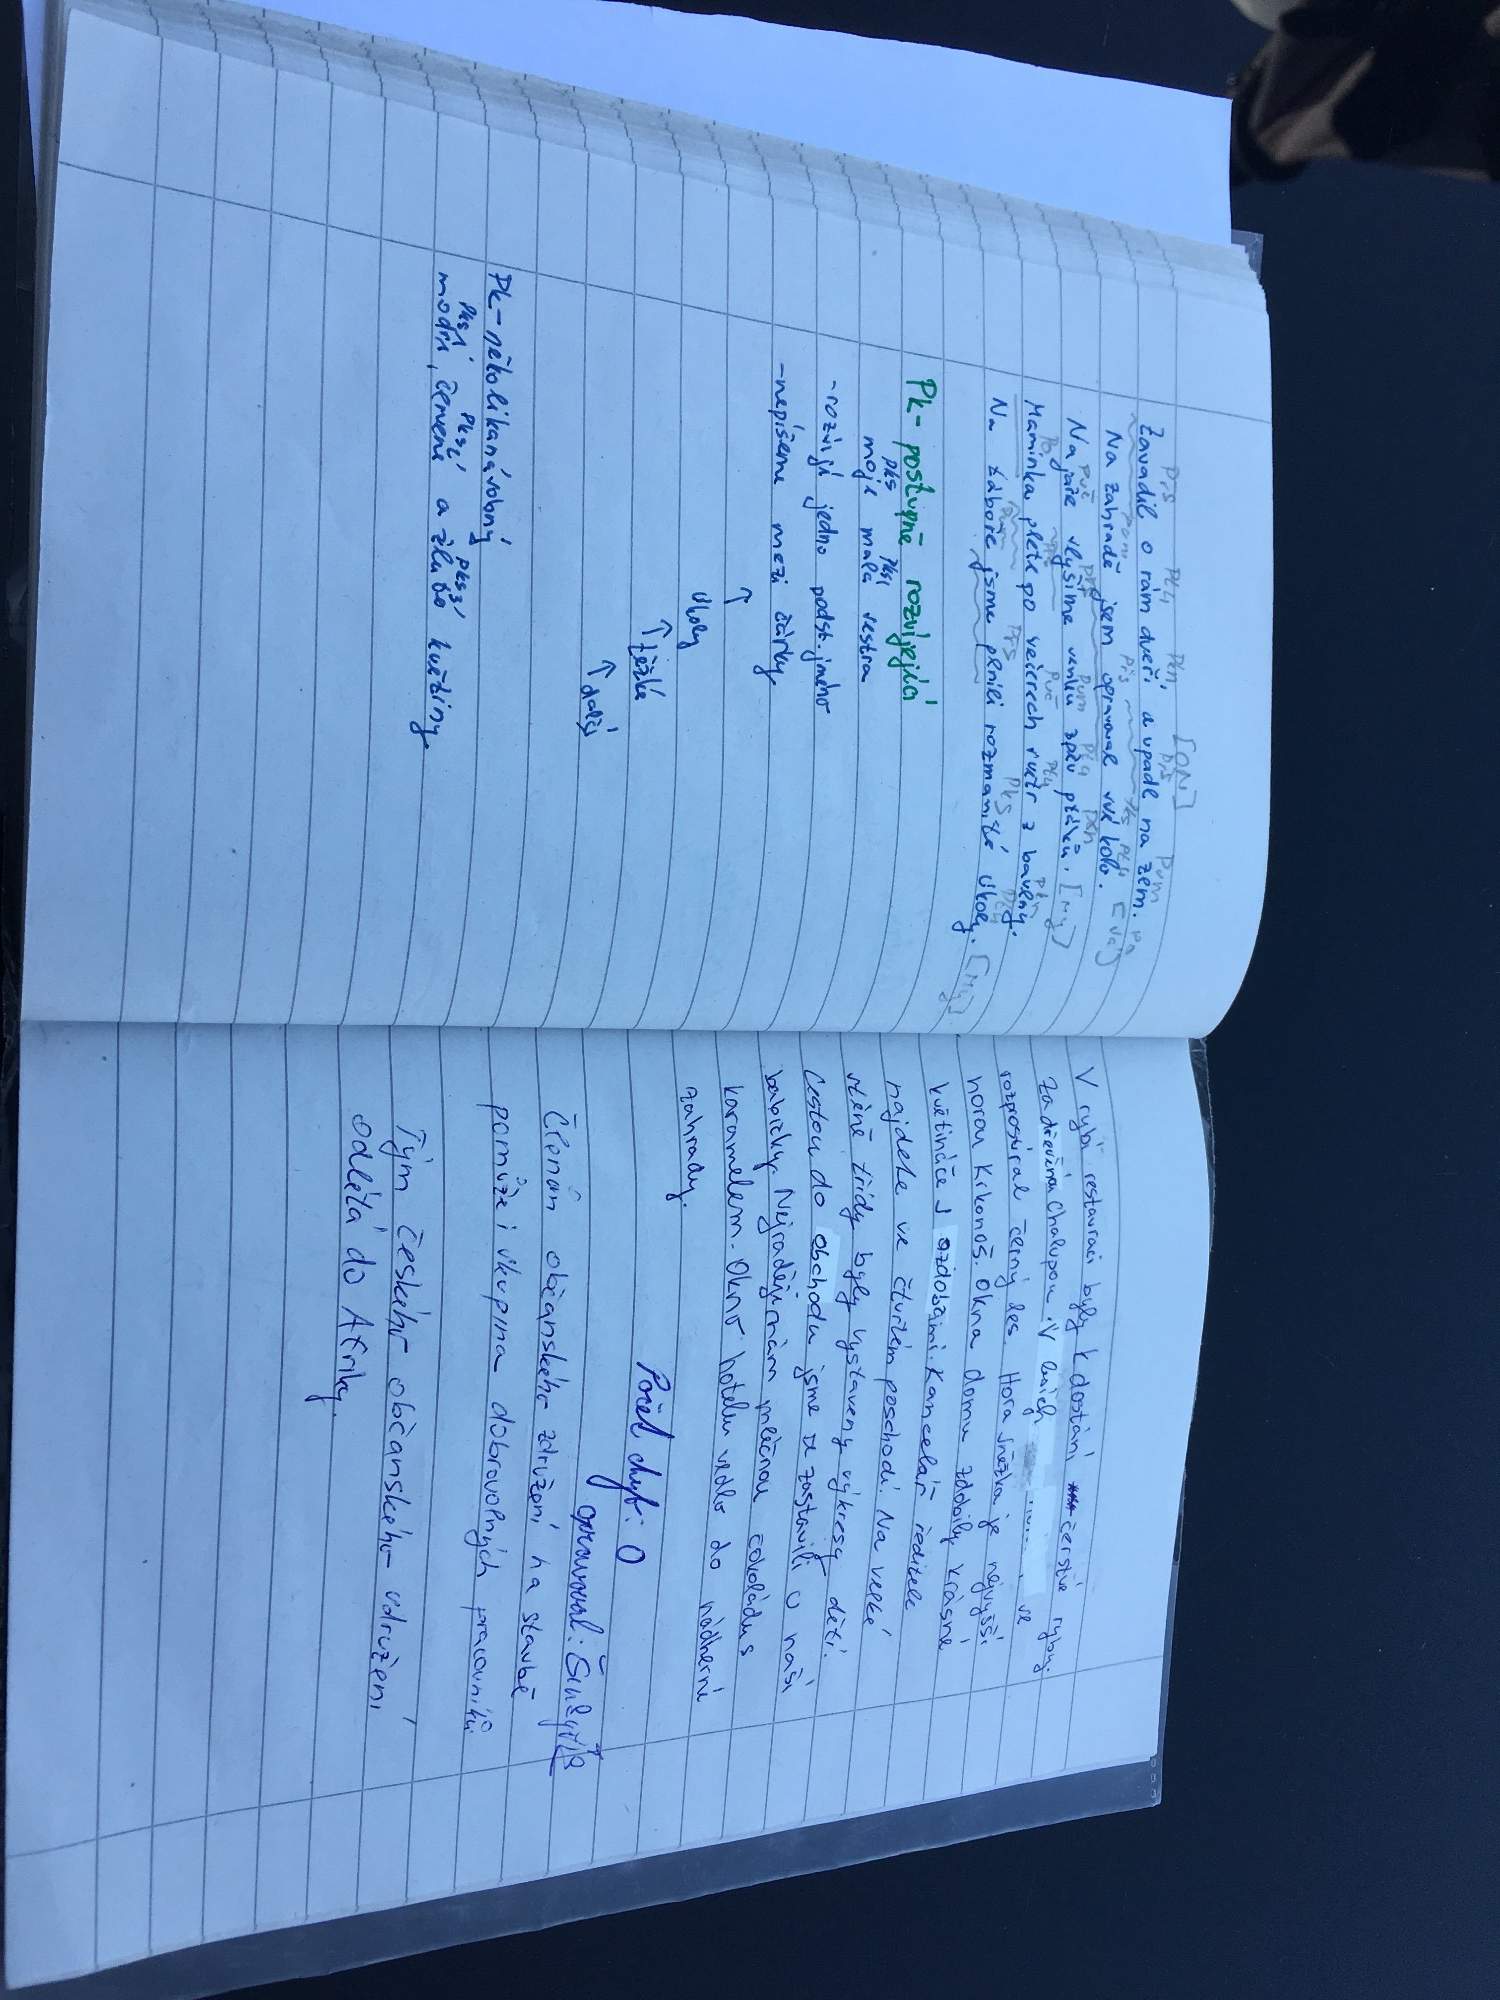 Přs Pt4 Pkn. [ON] Přs Pum
Zavadil o rám dveří a upadl na zem.
Pum Přs Pks Pt4 [Já]
Na zahradě jsem opravoval své kolo.
Puč Přs Pum Pt4 Pkn
Na jaře slyšíme venku zpěv ptáků. [My]
Po Puč Pt4 Pkn
Maminka plete po večerech svetr z bavlny.
Pum Přs Pks Pt4
Na táboře jsme plnili rozmanité úkoly. [My]
Pk- postupně rozvíjející
pks pks
moje malá sestra
- rozvíjí jedno podst. jméno
- nepíšeme mezi čárky
↑
úkoly
↑ těžké
↑ další
Pk - několikanásobný
Pks1 Pks2 Pks3
modré, červené a žluté květiny
V rybí restauraci byly k dostání čerstvé ryby.
Za dřevěnou chalupou v ve
rozprostíral černý les. Hora Sněžka je nejvyšší
horou Krkonoš. Okna domu zdobily krásné
květináče s ozdobami. Kancelář ředitele
najdete ve čtvrtém poschodí. Na velké
stěně třídy byly vystaveny výkresy dětí.
Cestou do obchodu jsme se zastavili u naší
babičky. Nejraději mám mléčnou čokoládu s
karamelem. Okno hotelu vedlo do nádherné
zahrady.
Počet chyb: 0
opravoval:
Členům občanského združení na stavbě
pomůže i skupina dobrovolných pracovníků
Tým českého občanského sdružení
odlétá do Afriky.